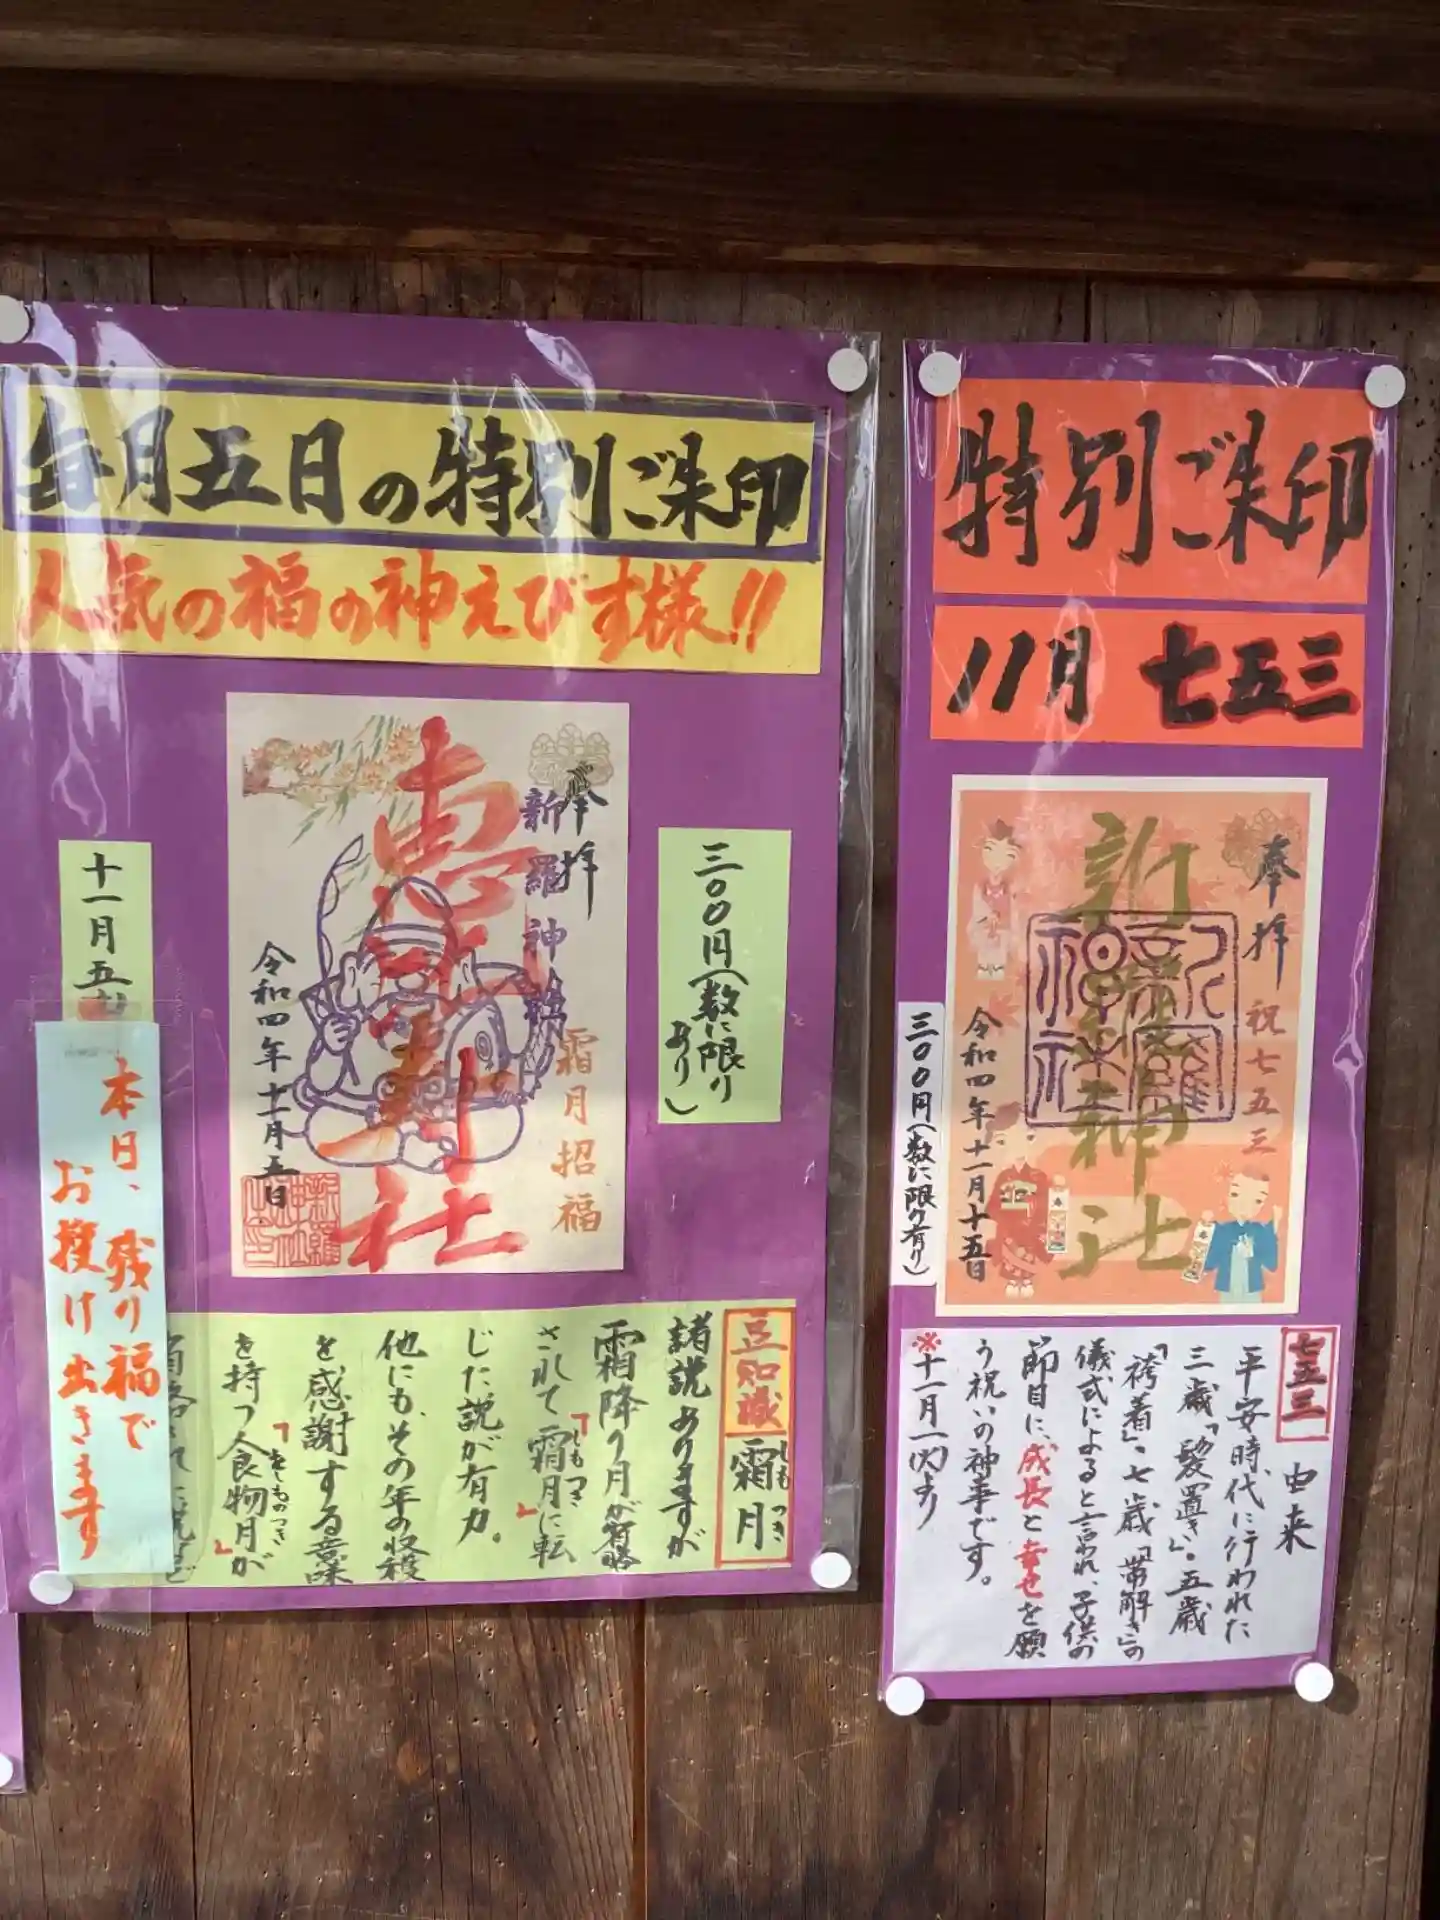 毎月五日の特別ご朱印
人気の福の神えびす様!!
三〇〇円(数に限り
あり)
奉拝
新羅神社
霜月招福
恵比寿社
令和四年十一月五日
十一月五日
本日、残り福で
お授け出きます
豆知識 霜月
しも つき
諸説ありますが
霜降り月が省略
されて「霜月」に転
しもつき
じた説が有力。
他にも、その年の収穫
を感謝する意味
を持つ「食物月」が
をしものつき
特別ご朱印
11月 七五三
奉拝
祝七五三
新羅神社
新羅神社
令和四年十一月十五日
三〇〇円(数に限り有り)
七五三 由来
平安時代に行われた
三歳「髪置き」・五歳
「袴着」・七歳「帯解き」の
儀式によると言われ、子供の
節目に、成長と幸せを願
う祝いの神事です。
※十一月一日(火)より